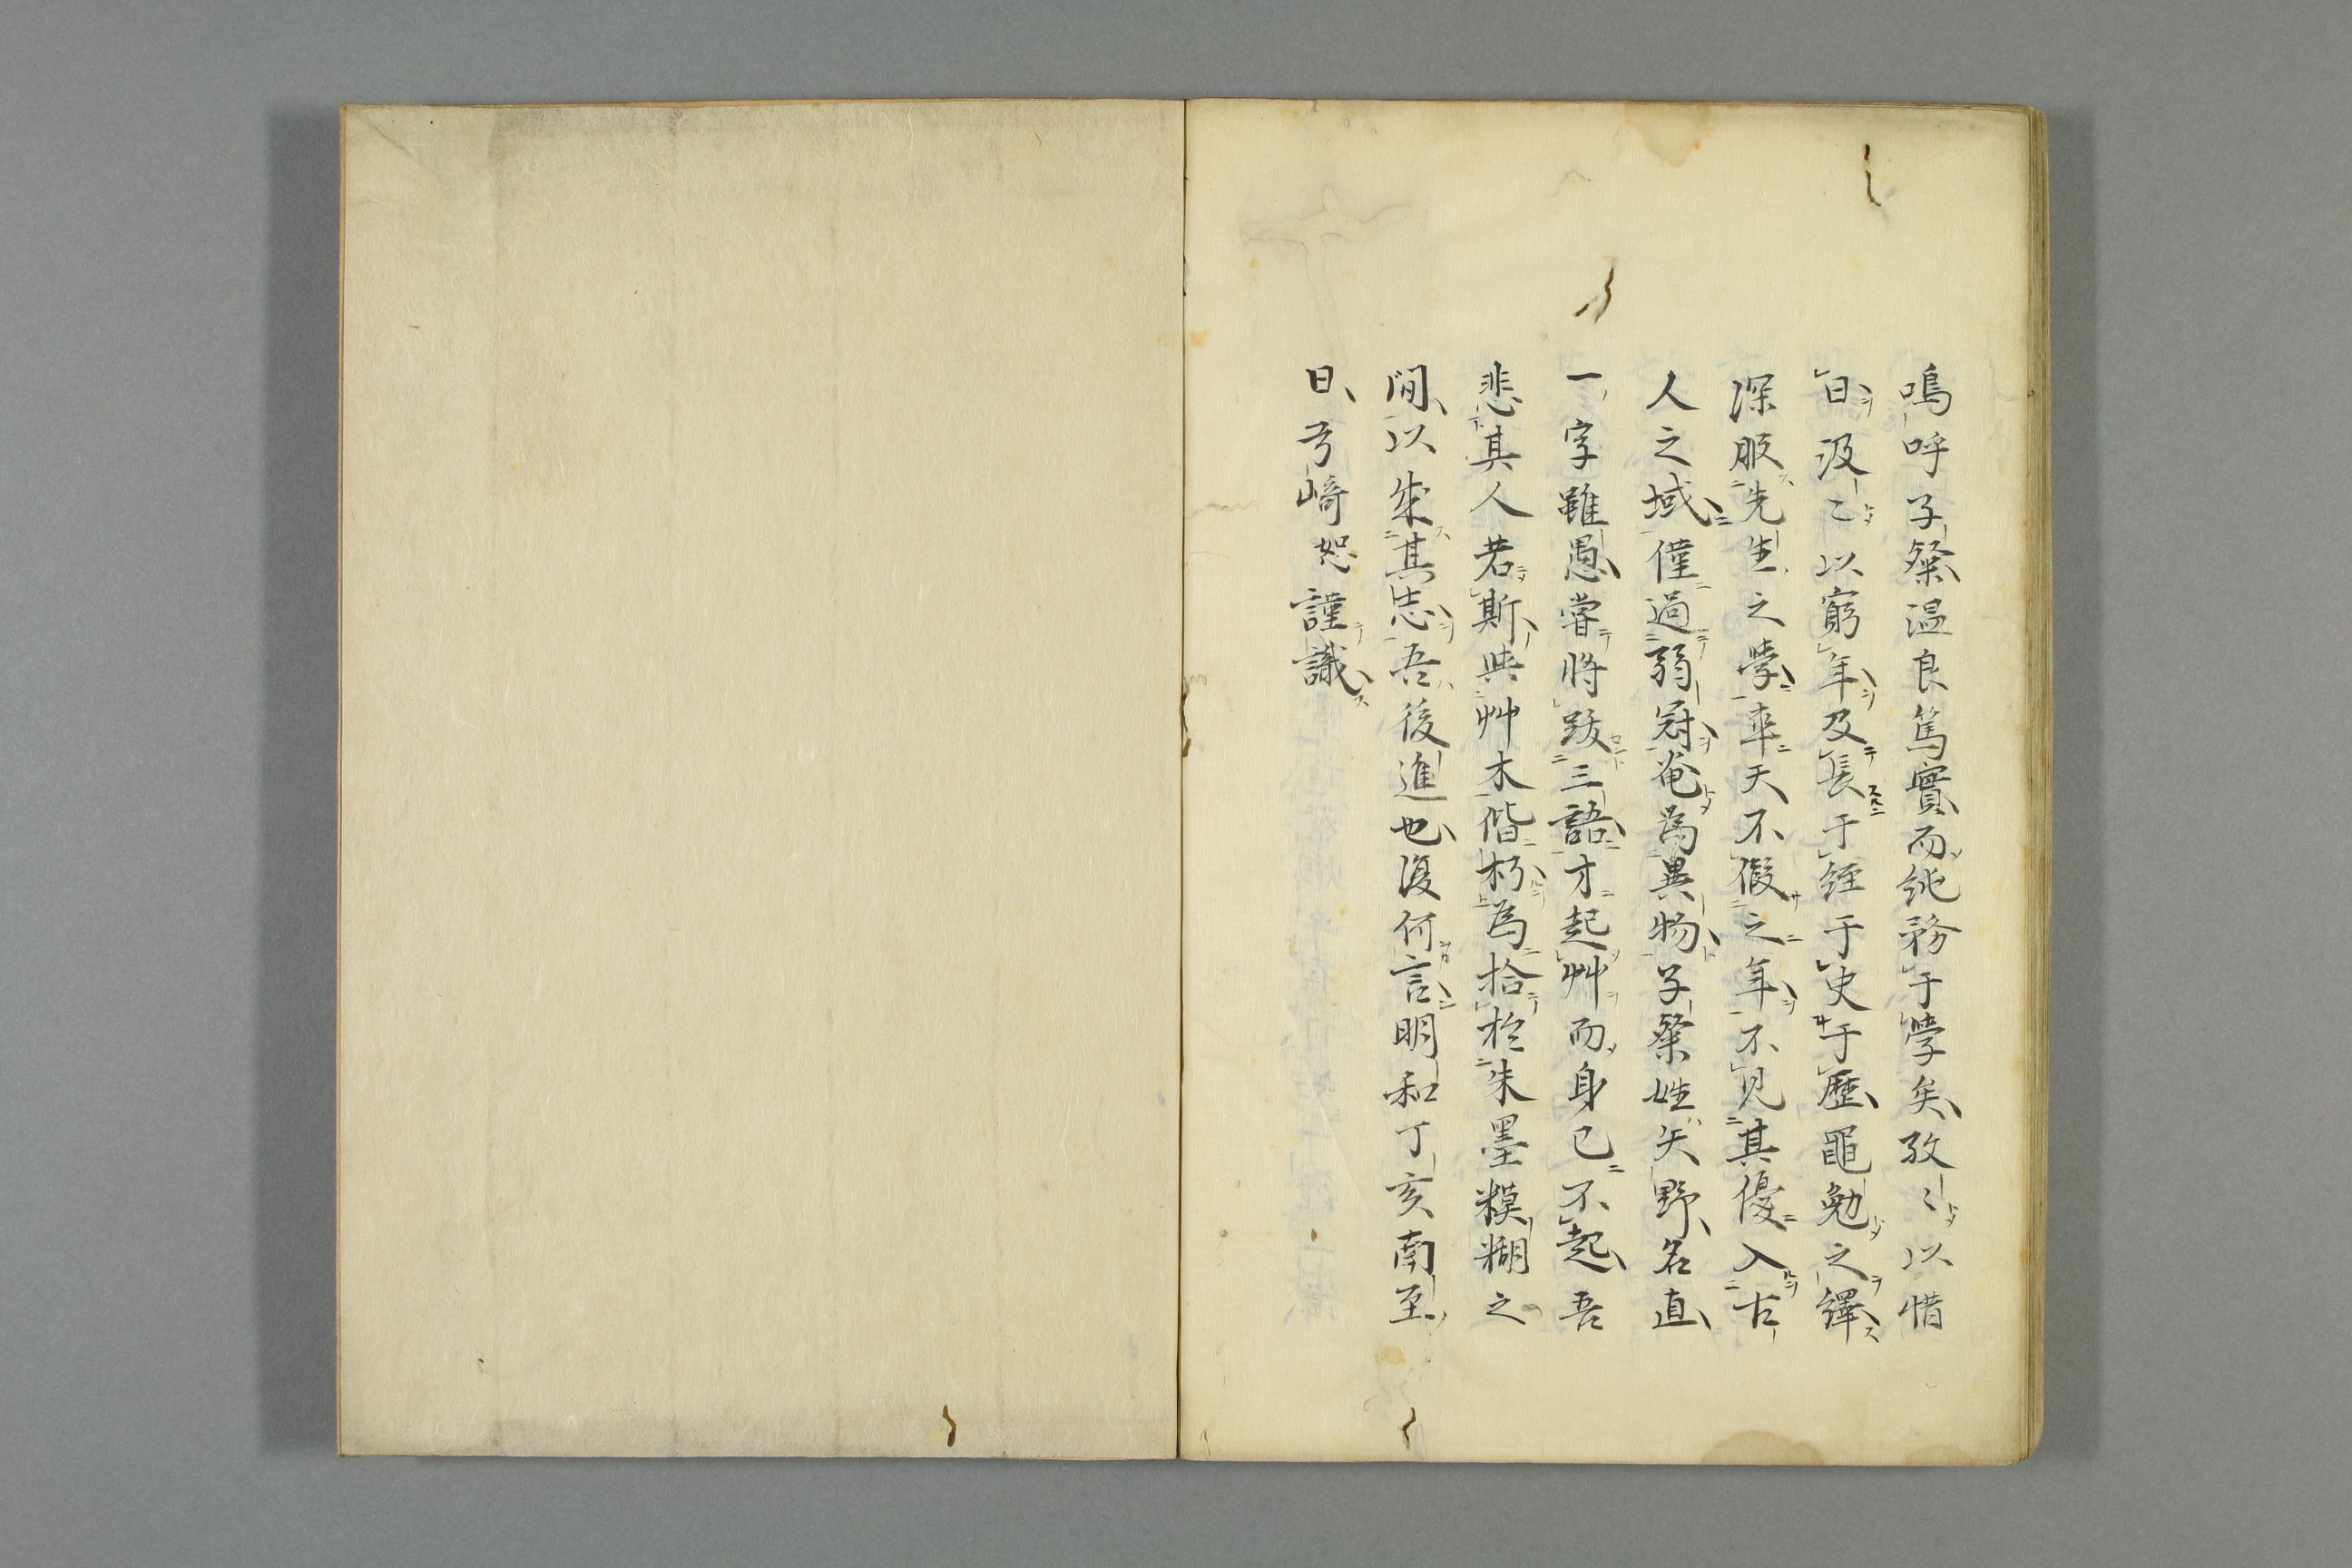 嗚呼子粲温良篤實而純務于學矣孜〻以惜
日汲〻以窮年及長于經于史于歷黽勉之繹
深服先生之學率天不假之年不見其優入古
人之域僅過弱冠奄為異物子粲姓矢野名直
一字雖愚嘗將跋三語才起艸而身已不起吾
悲其人若斯與艸木偕朽為拾於朱墨糢糊之
間以朱其志吾後進也復何言明和丁亥南至
日 崎恕謹識